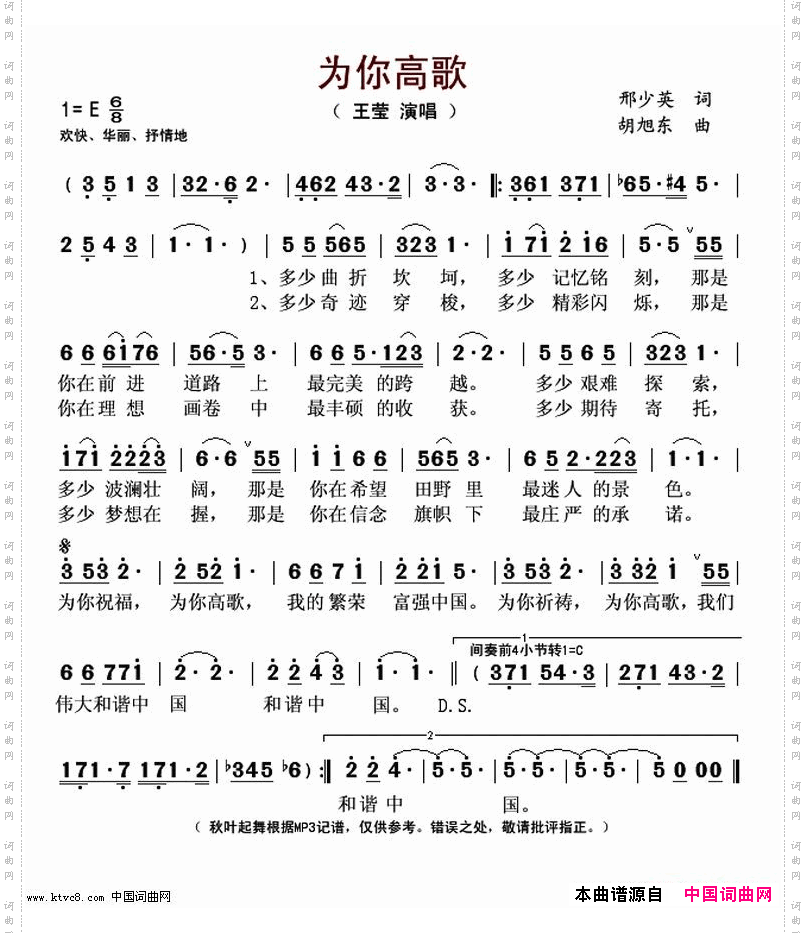 为你高歌
1=E 6/8
（ 王莹 演唱 ）
邢少英 词
胡旭东 曲
欢快、华丽、抒情地
( 3 5 1 3 | 32·6 2· | 462 43·2 | 3·3· |: 361 371 | ♭65·♯4 5· |
2 5 4 3 | 1·1· ) | 5 5 565 | 323 1· | 1 71 2 16 | 5·5 ∨ 55 |
1、多少曲折 坎 坷， 多少 记忆铭 刻， 那是
2、多少奇迹 穿 梭， 多少 精彩闪 烁， 那是
6 6 6176 | 56·5 3· | 6 6 5·123 | 2·2· | 5 5 6 5 | 323 1· |
你在前 进 道路 上 最完美 的跨 越。 多少 艰难 探 索，
你在理 想 画卷 中 最丰硕 的收 获。 多少 期待 寄 托，
171 2223 | 6·6 ∨ 55 | 1 1 6 6 | 565 3· | 6 5 2·223 | 1·1· |
多少 波澜壮 阔， 那是 你在希望 田野 里 最迷人 的景 色。
多少 梦想在 握， 那是 你在信念 旗帜 下 最庄严 的承 诺。
3 53 2· | 2 52 1· | 6 6 7 1 | 2 21 5· | 3 53 2· | 3 32 1 ∨ 55 |
为你祝福， 为你高歌， 我的繁荣 富强中国。 为你祈祷， 为你高歌，我们
1
间奏前4小节转1=C
6 6 771 | 2·2· | 2 2 4 3 | 1·1· ‖ ( 371 54·3 | 271 43·2 |
伟大和谐中 国 和谐中 国。 D.S.
2
171·7 171·2 | ♭345 ♭6 ) :‖ 2 2 4· | 5·5· | 5·5· | 5·5· | 5 0 00 ‖
和谐中 国。
（ 秋叶起舞根据MP3记谱，仅供参考。错误之处，敬请批评指正。）
www.ktvc8.com 中国词曲网
本曲谱源自 中国词曲网